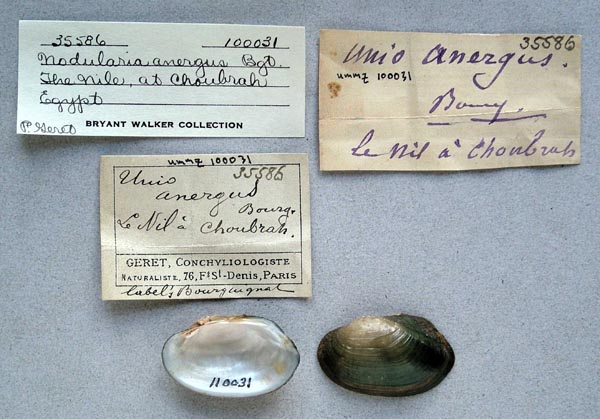 35586 100031
Nodularia anergus Bgt.
The Nile, at Choubrah
Egypt
P. Geret BRYANT WALKER COLLECTION
35586
Unio anergus.
ummz 100031
Bourg.
Le Nil à Choubrah
ummz 100031
35586
Unio
anergus
Bourg.
Le Nil à Choubrah.
GERET, CONCHYLIOLOGISTE
NATURALISTE, 76, Fg St-DENIS, PARIS
label, Bourguignat
110031